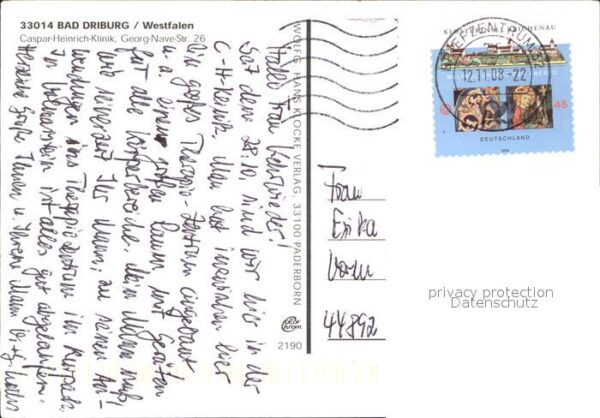 33014 BAD DRIBURG / Westfalen
Caspar-Heinrich-Klinik, Georg-Nave-Str. 26
Hallo Frau
Seit dem 28.10. sind wir hier in der
C-H-Klinik. Man hat inzwischen hier
ein großes Therapie-Zentrum eingebaut
u. a. einen großen Raum mit Geräten
für alle Körperbereiche. Mein Mann muß
wie seinerzeit Ihr Mann, zu seinen An-
wendungen ins Therapiezentrum im Kurpark.
In ist alles gut abgelaufen.
Herzliche Grüße Ihnen u. Ihrem Mann
WOLFG. HANS KLOCKE VERLAG, 33100 PADERBORN
2190
KLOSTERINSEL REICHENAU
BRIEFZENTRUM
12.11.08-22
45
DEUTSCHLAND
Frau
Erika
44892
privacy protection
Datenschutz